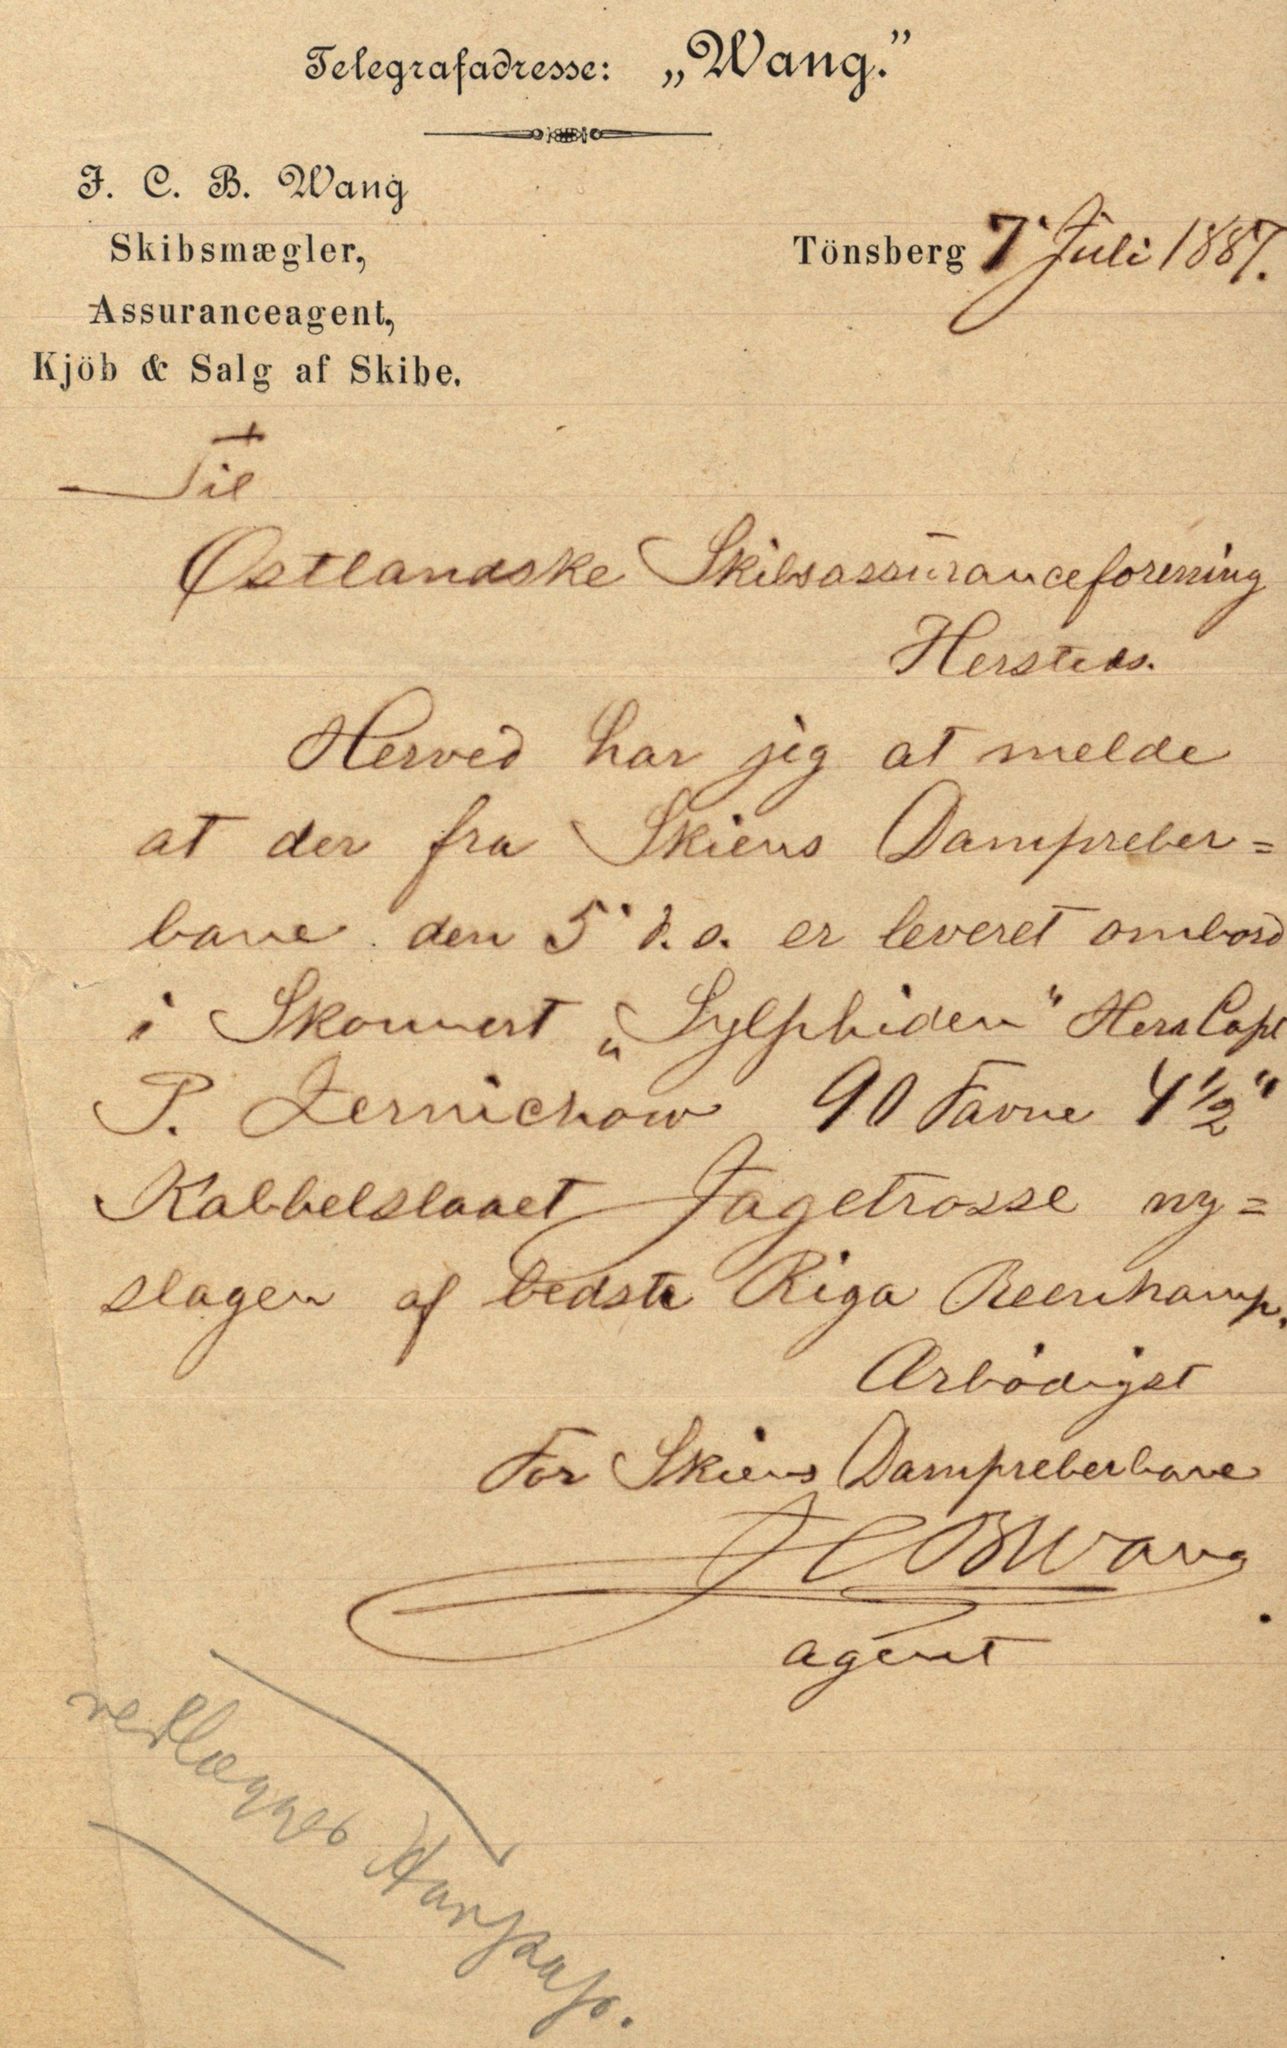 Telegrafadresse: „Wang.”
J. C. B. Wang
Skibsmægler,
Assuranceagent,
Kjöb & Salg af Skibe.
Tönsberg 7' Juli 1887.
Til
Østlandske Skibsassuranceforening
Hersteds.
Herved har jeg at melde
at der fra Skiens Dampreber=
bane den 5' d.s. er leveret ombord
i Skonnert „Sylphiden" Herr Capt
P. Jernichow 90 Favne 4 1/2"
Kabbelslaaet Jagetrosse ny=
slagen af bedste Riga Reenhamp.
Ærbødigst
For Skiens Dampreberbane
JCBWang
agent
vedlægges